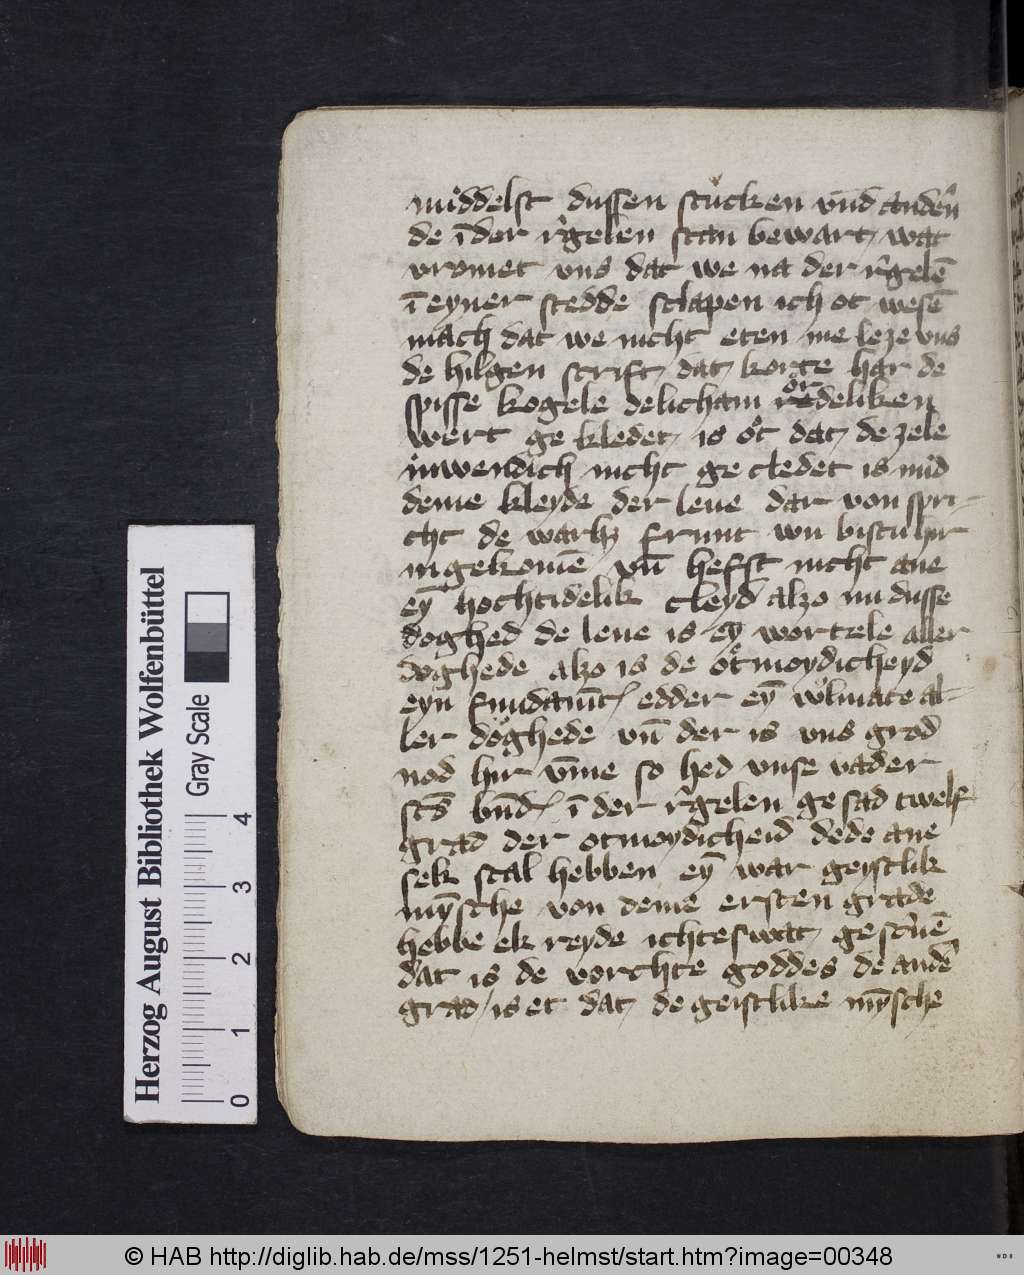 middelst dussen stucken vnd anderen
de ī der rͥgelen stan bewart wat
vromet vns dat we na der rͥgelē
ī eyner stedde sclapen ich ot wesē
mach dat we nicht eten me leze vns
de hilgen scrift dat korte har de
spisse kogele de licham or redeliken
wert ge kledet is ot dat de zele
inwendich nicht ge cledet is mid
deme kleyde der leue dar von spri-
cht de warhͭ frunt wu bistu hir
in gekomē vn̄ hefst nicht ane
eȳ hochtidelik cleyd alzo nu dusse
doghed de leue is eȳ wortele aller
doghede alzo is de otmoydicheyd
eyn fundamēt edder eȳ vulmate al-
ler doghede vn̄ der is vns grod
nod hir v̄me so hed vnse vader
sc̄s bn̄d ī der rͥgelen ge sad twelf
grad der otmoydicheid dede ane
sek scal hebben eȳ war geystlik
mȳsche von deme ersten grade
hebbe ek reyde ichteswat gescͥuē
dat is de vorchte goddes de anđē
grad is et dat de geistlike mȳsche
Herzog August Bibliothek Wolfenbüttel
Gray Scale
0 1 2 3 4
© HAB http://diglib.hab.de/mss/1251-helmst/start.htm?image=00348